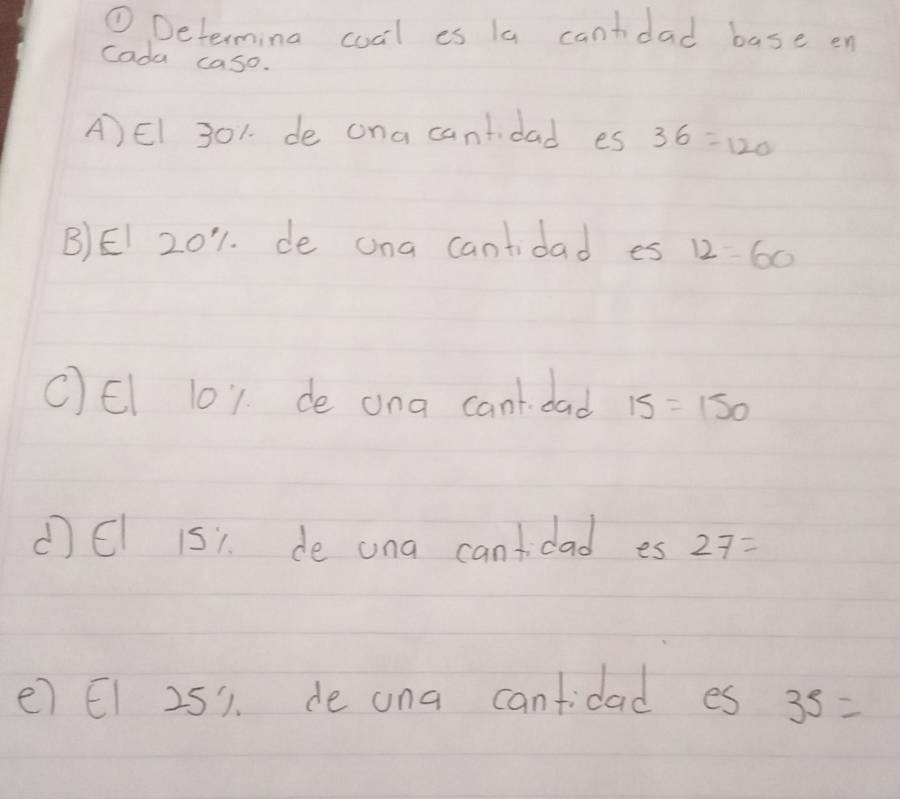 ① Determina cuál es la cantidad base en
cada caso.
A) El 30% de una cantidad es 36 = 120
B) El 20% de una cantidad es 12 = 60
C) El 10% de una cantidad 15 = 150
d) El 15% de una cantidad es 27 =
e) El 25% de una cantidad es 35 =